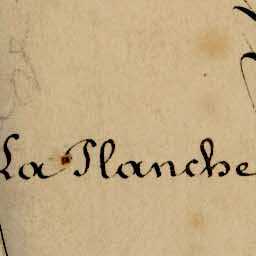 La Planche